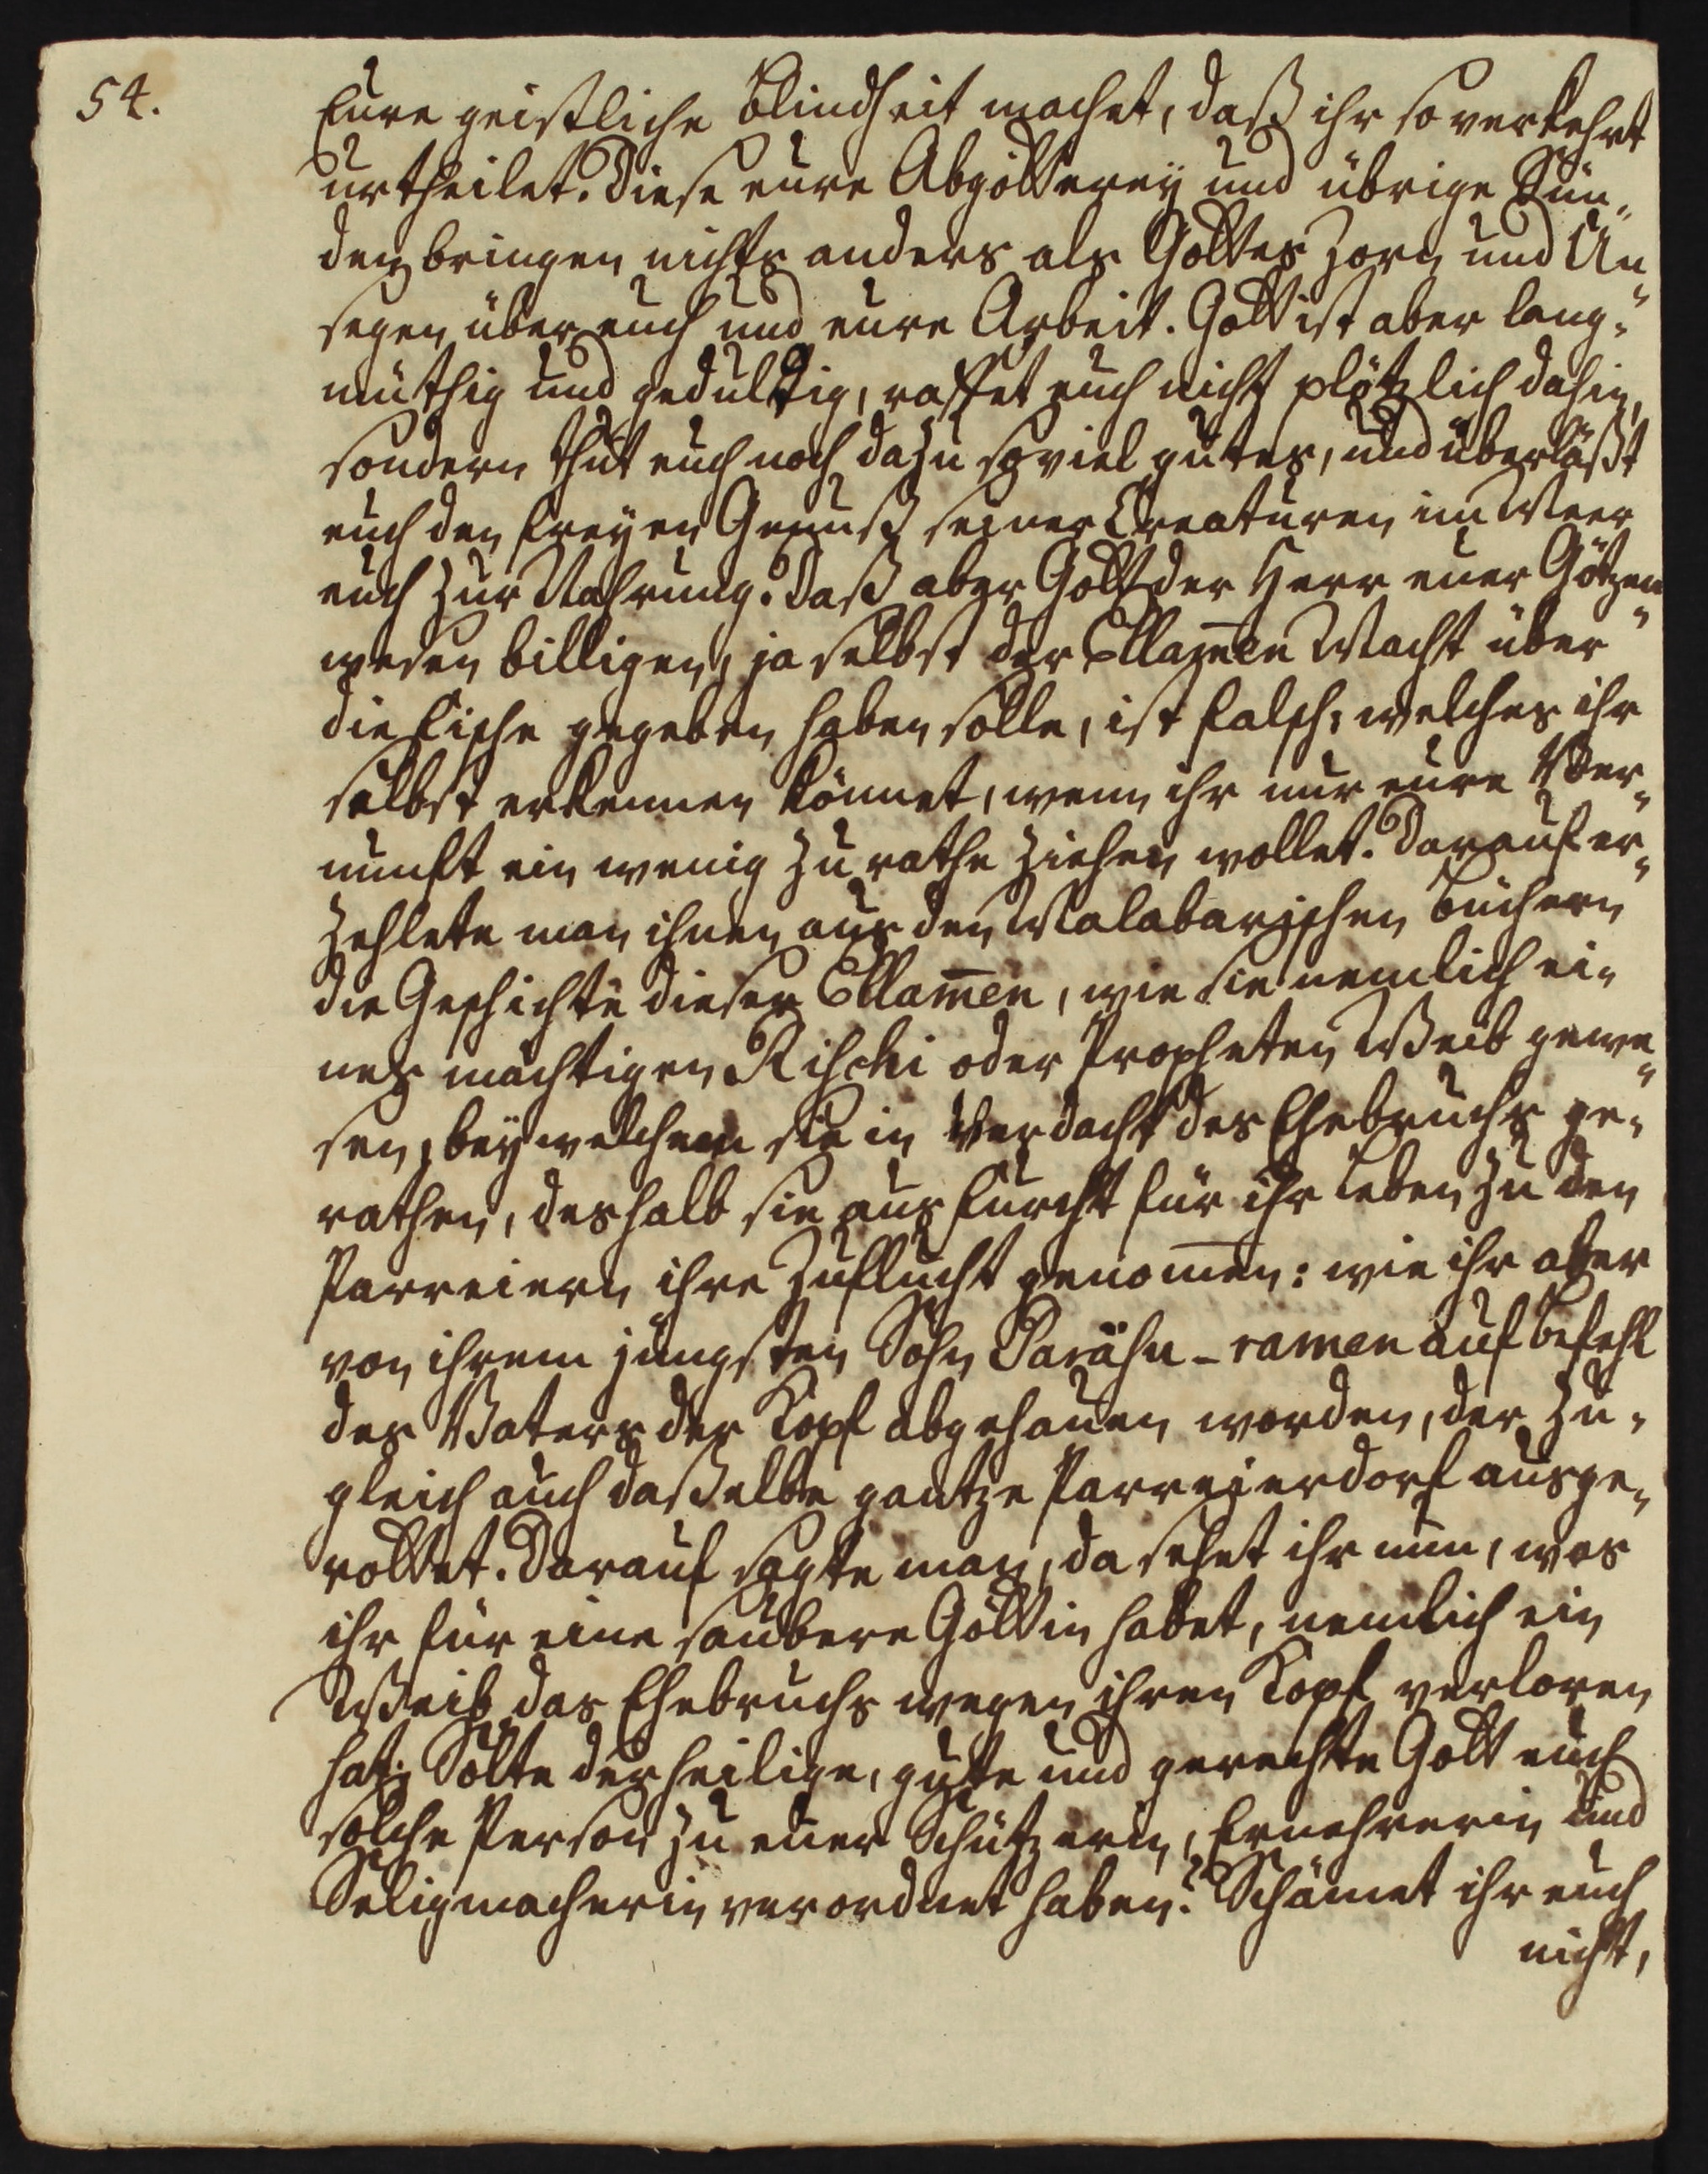 54.
Eure geistliche Blindheit machet, daß ihr so verkehrt
urtheilet. Diese eure Abgötterey und übrige Sün-
den bringen nichts anders als Gottes Zorn und Un-
segen über euch und eure Arbeit. Gott ist aber lang-
müthig und gedultig, raffet euch nicht plötzlich dahin,
sondern thut euch noch dazu soviel gutes, und überläßt
euch den freyen Genuß seiner Creaturen im Meer
euch zur Nahrung. Daß aber Gott der Herr euer Götzen-
wesen billigen, ja selbst der Ellam̅en Macht über
die Fische gegeben haben solle, ist falsch, welches ihr
selbst erkennen könnet, wenn ihr nur eure Ver-
nunft ein wenig zu rathe ziehen wollet. Darauf er-
zehlete man ihnen aus den Malabarischen Büchern
die Geschichte dieser Ellam̅en, wie sie nemlich ei-
nes mächtigen Rischi oder Propheten Weib gewe-
sen, bey welchem sie in Verdacht des Ehebruchs ge-
rathen, deshalb sie aus Furcht für ihr Leben zu den
Parreiern ihre Zuflucht genom̅en: wie ihr aber
von ihrem jüngsten Sohn Paräsu-ramen auf Befehl
des Vaters der Kopf abgehauen worden, der zu-
gleich auch daßelbe gantze Parreierdorf ausge-
rottet. Darauf sagte man, da sehet ihr nun, was
ihr für eine saubere Göttin habet, nemlich ein
Weib das Ehebruchs wegen ihren Kopf verloren
hat. Solte der heilige, gute und gerechte Gott euch
solche Person zu euer Schützerin, Ernehrerin und
Seligmacherin verordnet haben? Schämet ihr euch
nicht,